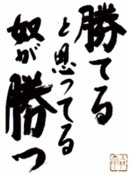 勝てる
と思ってる
奴が勝つ